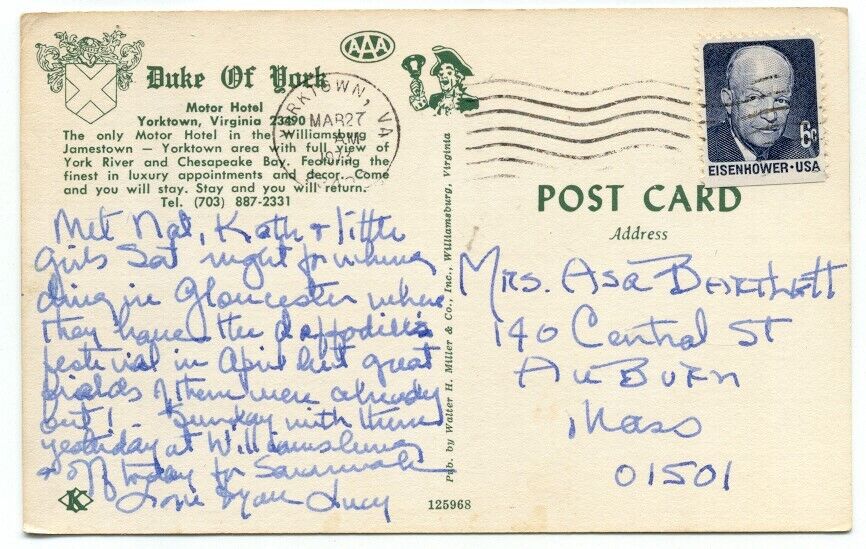 AAA
Duke Of York
Motor Hotel
Yorktown, Virginia 23490
The only Motor Hotel in the Williamsburg
Jamestown — Yorktown area with full view of
York River and Chesapeake Bay. Featuring the
finest in luxury appointments and decor. Come
and you will stay. Stay and you will return.
Tel. (703) 887-2331
RKTOWN, VA
MAR 27
AM
Met Nat, Kath & little
girls Sat night for
in Gloucester where
they have the daffodils
festival in April but great
fields of them were already
out! Sunday with them
yesterday at Williamsburg
& off today for Savannah
Love Lucy
K
125968
Pub. by Walter H. Miller & Co., Inc., Williamsburg, Virginia
6¢
EISENHOWER·USA
POST CARD
Address
Mrs. Asa Bartlett
140 Central St
Auburn
Mass
01501